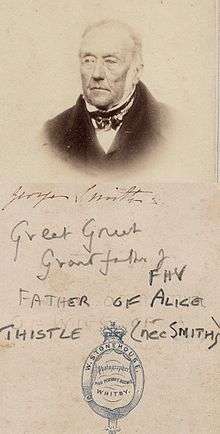 George Smith
Great Great
Grandfather of
FHV
FATHER OF ALICE
THISTLE (nee SMITH)
W. STONEHOUSE.
Photographer
WHITBY.